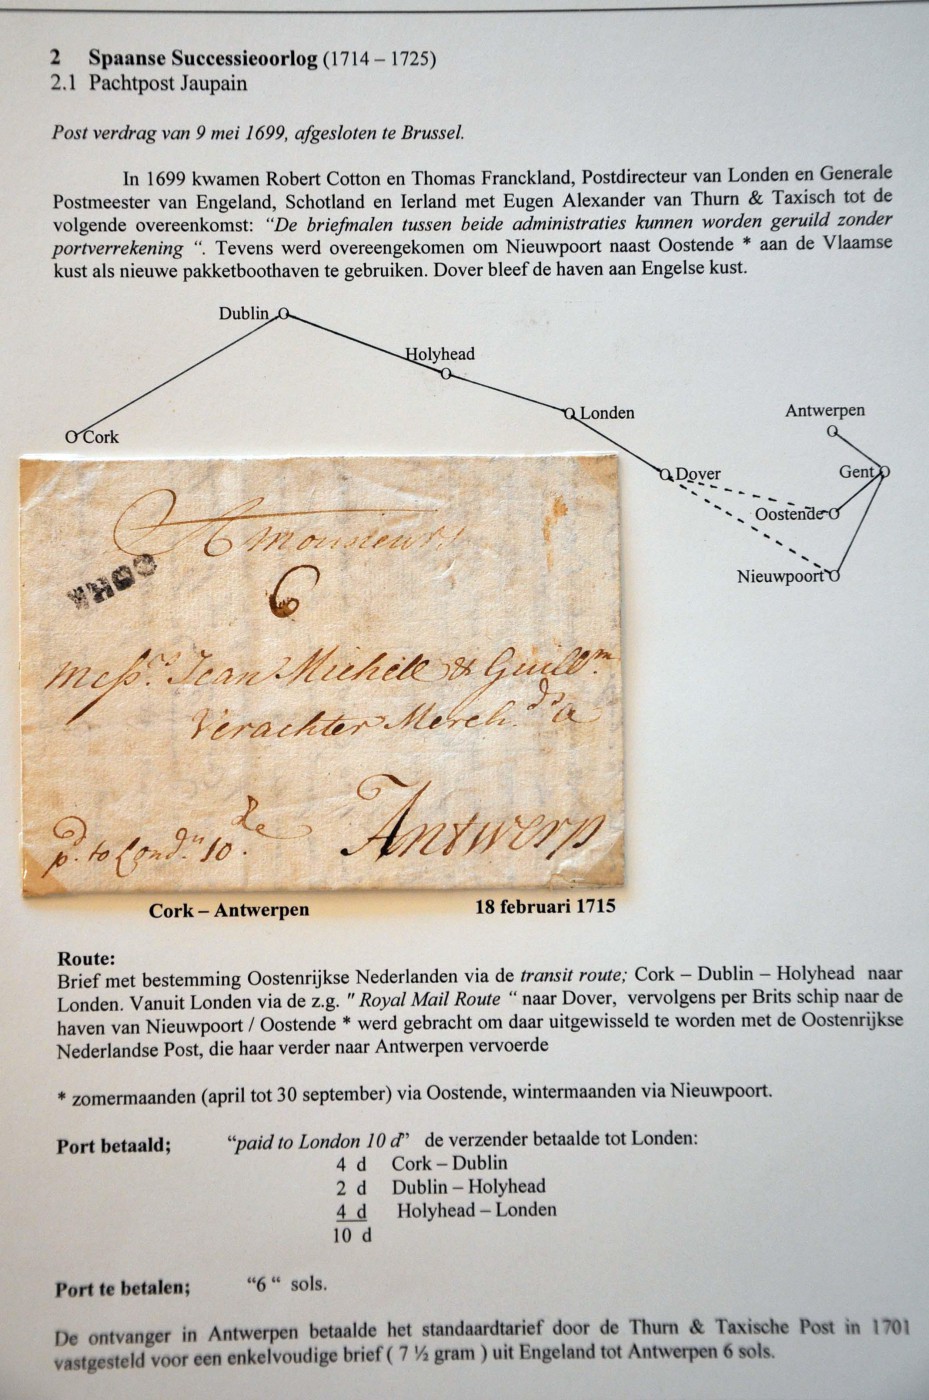 2 Spaanse Successieoorlog (1714 – 1725)
2.1 Pachtpost Jaupain
Post verdrag van 9 mei 1699, afgesloten te Brussel.
In 1699 kwamen Robert Cotton en Thomas Franckland, Postdirecteur van Londen en Generale
Postmeester van Engeland, Schotland en Ierland met Eugen Alexander van Thurn & Taxisch tot de
volgende overeenkomst: “De briefmalen tussen beide administraties kunnen worden geruild zonder
portverrekening “. Tevens werd overeengekomen om Nieuwpoort naast Oostende * aan de Vlaamse
kust als nieuwe pakketboothaven te gebruiken. Dover bleef de haven aan Engelse kust.
Dublin
Holyhead
Londen
Antwerpen
Cork
Dover
Gent
Oostende
Nieuwpoort
A monsieur
CORK
6
Mess.rs Jean Michele & Guill.m
Verachter Merch.ds a
Antwerp
pd. to Lond.n 10 de
Cork – Antwerpen
18 februari 1715
Route:
Brief met bestemming Oostenrijkse Nederlanden via de transit route; Cork – Dublin – Holyhead naar
Londen. Vanuit Londen via de z.g. " Royal Mail Route “ naar Dover, vervolgens per Brits schip naar de
haven van Nieuwpoort / Oostende * werd gebracht om daar uitgewisseld te worden met de Oostenrijkse
Nederlandse Post, die haar verder naar Antwerpen vervoerde
* zomermaanden (april tot 30 september) via Oostende, wintermaanden via Nieuwpoort.
Port betaald; “paid to London 10 d” de verzender betaalde tot Londen:
4 d Cork – Dublin
2 d Dublin – Holyhead
4 d Holyhead – Londen
10 d
Port te betalen; “6 “ sols.
De ontvanger in Antwerpen betaalde het standaardtarief door de Thurn & Taxische Post in 1701
vastgesteld voor een enkelvoudige brief ( 7 ½ gram ) uit Engeland tot Antwerpen 6 sols.